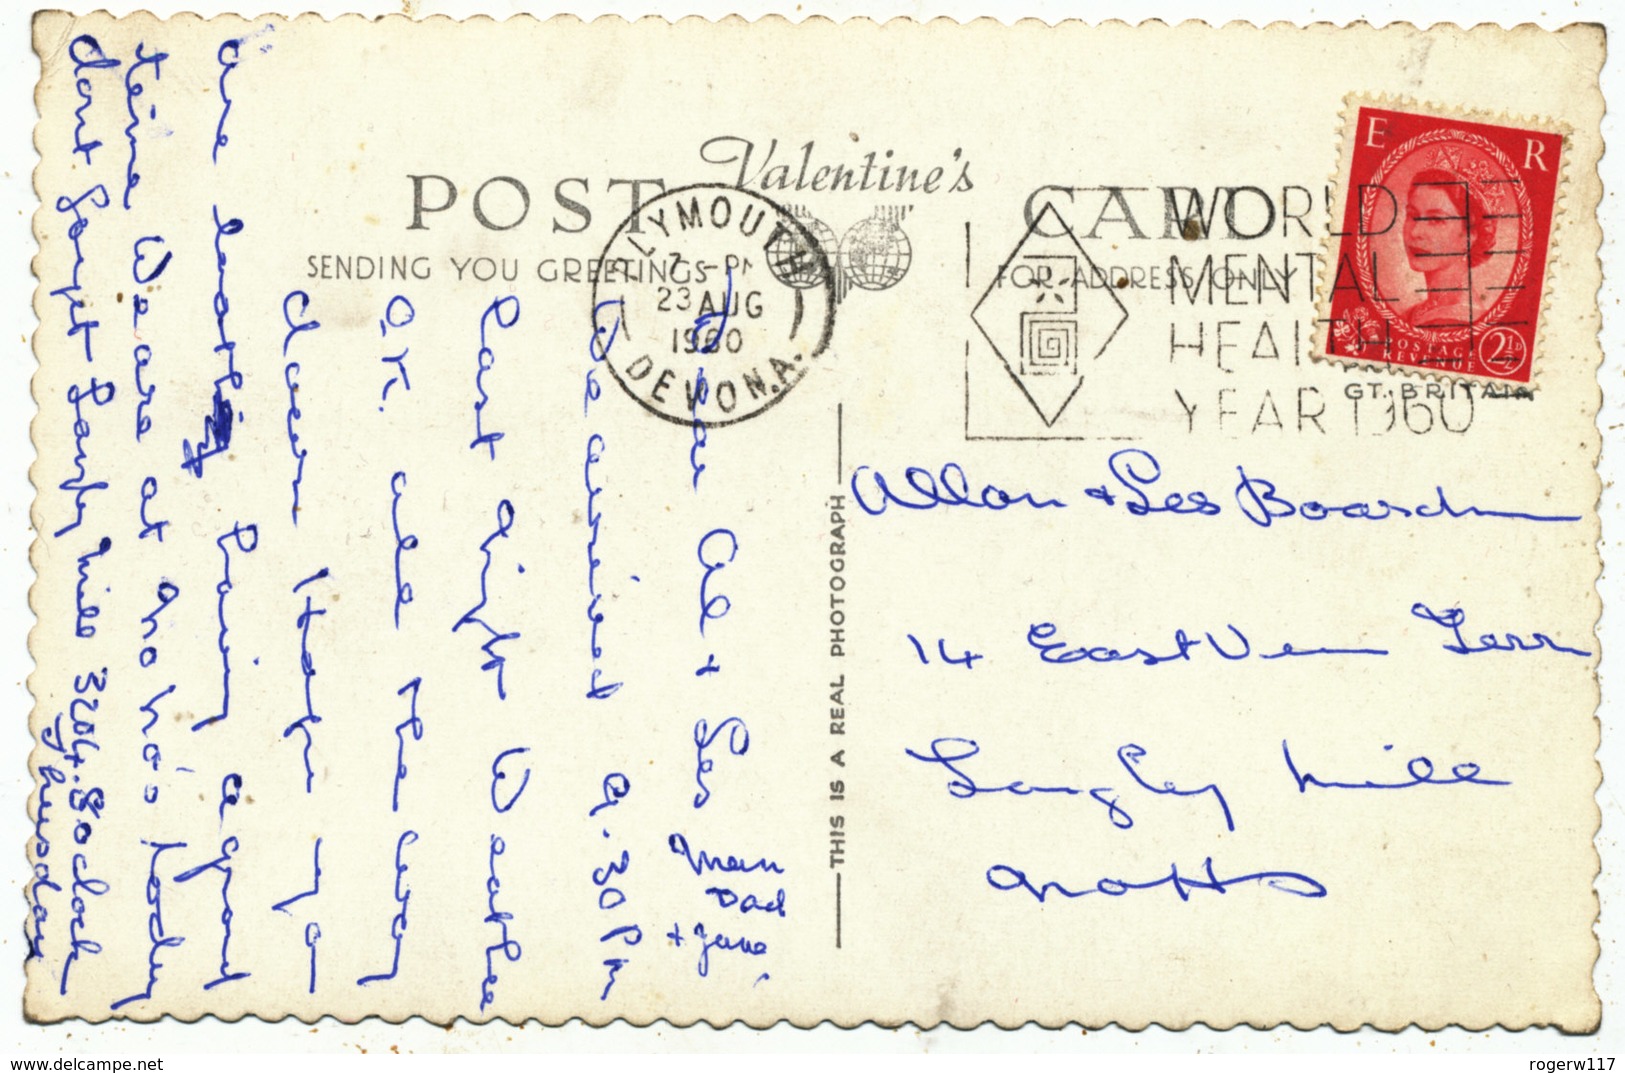 Valentine's
POST CARD
SENDING YOU GREETINGS
FOR ADDRESS ONLY
PLYMOUTH
7 - PM
23 AUG
1960
DEVON. A.
WORLD
MENTAL
HEALTH
YEAR 1960
E R
POSTAGE
REVENUE
2½D
GT. BRITAIN
THIS IS A REAL PHOTOGRAPH
Dear Al + Les
We arrived 9.30 PM
last night Weather
O.K. all the way
down Hope yo
are having a good
time We are at today
dont forget Langley Mill 3204. 8 oclock
Thursday
Mam
Dad
+ Jane
Allan + Les Boardman
14 East View Terr
Langley Mill
Notts
rogerw117